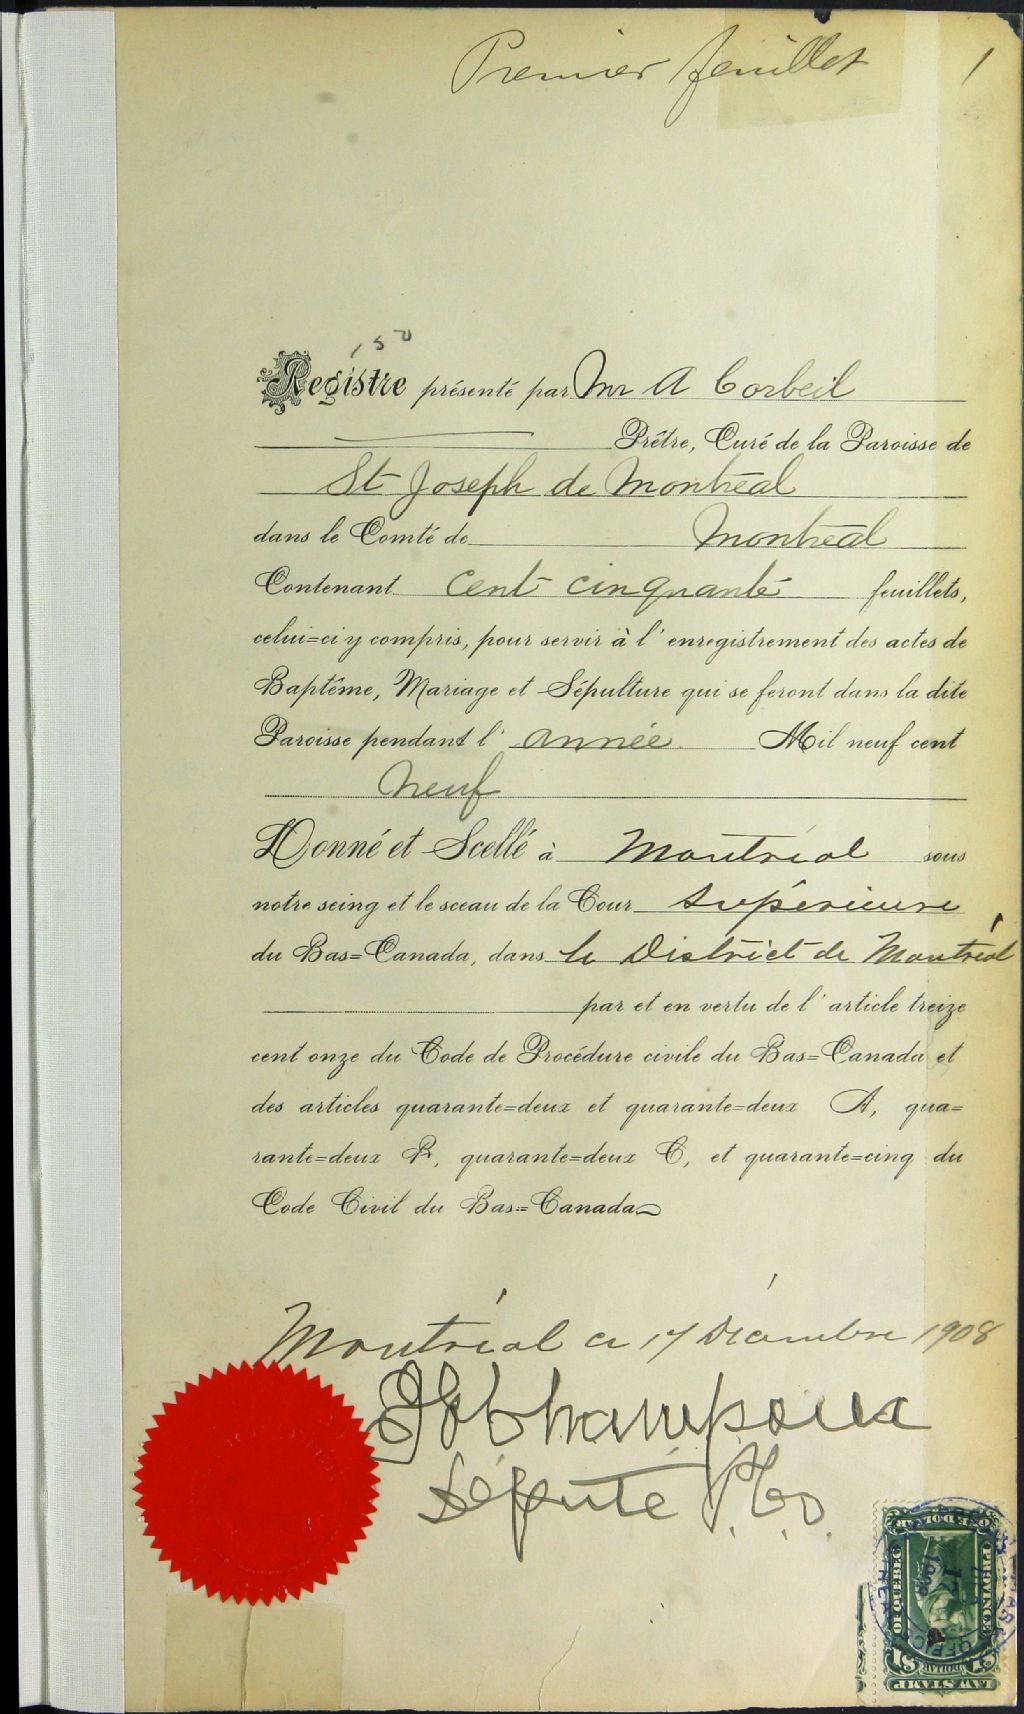 Premier feuillet 1
150
Registre présenté par Mr A Corbeil
Prêtre, Curé de la Paroisse de
St Joseph de Montréal
dans le Comté de Montréal
Contenant cent cinquante feuillets,
celui=ci y compris, pour servir à l'enregistrement des actes de
Baptême, Mariage et Sépulture qui se feront dans la dite
Paroisse pendant l'année Mil neuf cent
neuf
Donné et Scellé à Montréal sous
notre seing et le sceau de la Cour Supérieure
du Bas=Canada, dans le District de Montréal
par et en vertu de l'article treize
cent onze du Code de Procédure civile du Bas=Canada et
des articles quarante=deux et quarante=deux A, qua=
rante=deux B, quarante=deux C, et quarante=cinq du
Code Civil du Bas=Canada
Montréal ce 17 Décembre 1908
Champoux
Député P.C.S.
PROVINCE
OF QUEBEC
17
1908
$1 DOLLAR $1
LAW STAMP